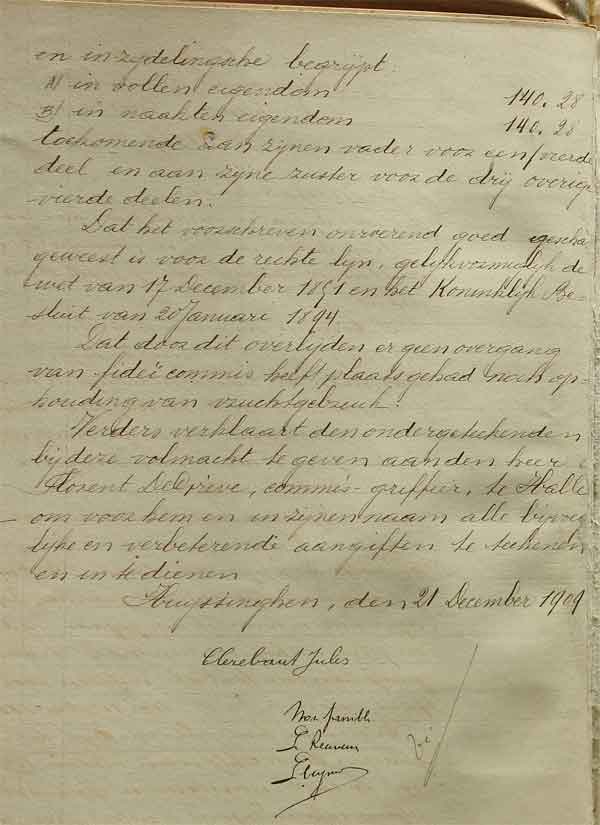 en inzydelingsche begrypt:
A) in vollen eigendom 140. 28
B) in naakten eigendom 140. 28
toekomende aan zynen vader voor een/vierde
deel en aan zyne zuster voor de drij overig
vierde deelen.
Dat het voorschreven onroerend goed gescha
geweest is voor de rechte lyn, gelykvormiglyk de
wet van 17 December 1851 en het Koninklyk Be-
sluit van 20 Januarie 1894
Dat door dit overlyden er geen overgang
van fideïcommis heeft plaats gehad noch op-
houding van vruchtgebruik.
Verders verklaart den ondergeteekenden
by deze volmacht te geven aan den heer
Florent , commis-griffier, te Halle
om voor hem en in zynen naam alle byvoe
lyke en verbeterende aangiften te teekenen
en in te dienen
Huyssinghen, den 21 December 1909
Clerebaut Jules